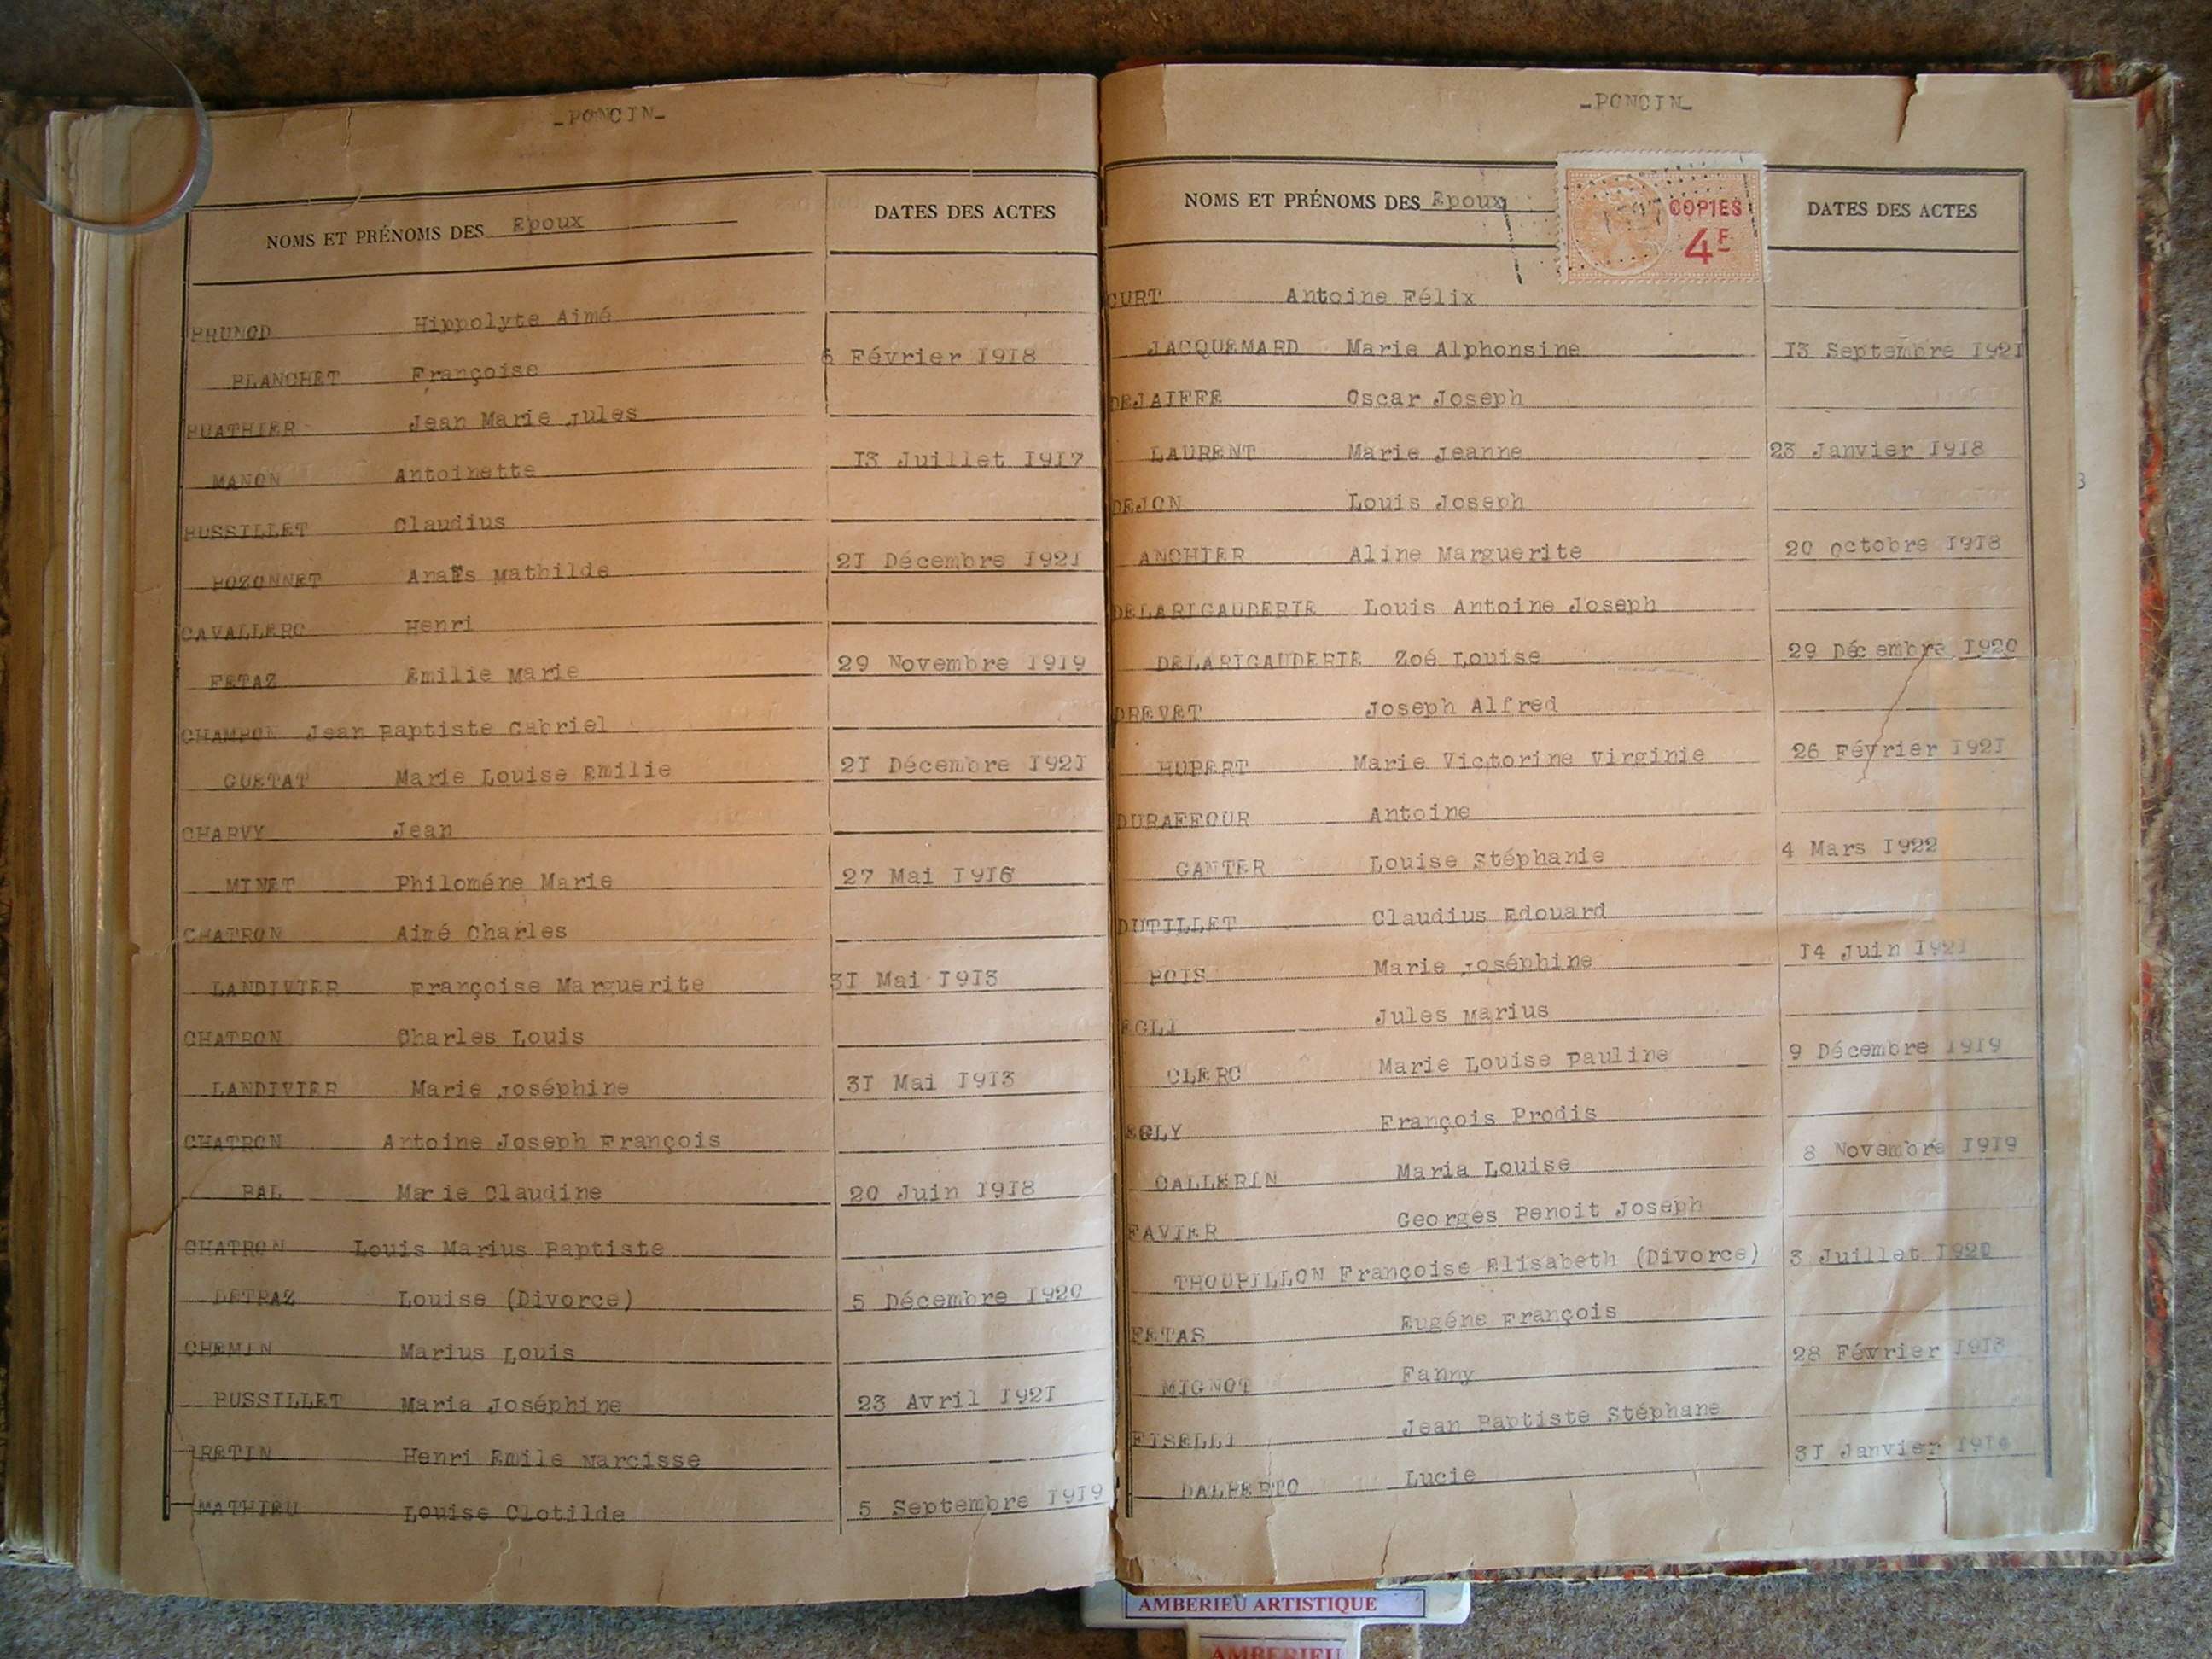 _PONCIN_
NOMS ET PRÉNOMS DES Epoux DATES DES ACTES
BRUNOD Hippolyte Aimé
BLANCHET Françoise 6 Février 1918
BUATHIER Jean Marie Jules
MANON Antoinette 13 Juillet 1917
BUSSILLET Claudius
BOZONNET Anaïs Mathilde 21 Décembre 1921
CAVALLERO Henri
FETAZ Emilie Marie 29 Novembre 1919
CHAMBON Jean Baptiste Gabriel
GUETAT Marie Louise Emilie 21 Décembre 1921
CHARVY Jean
MINET Philoméne Marie 27 Mai 1916
CHATRON Aimé Charles
LANDIVIER Françoise Marguerite 31 Mai 1913
CHATRON Charles Louis
LANDIVIER Marie Joséphine 31 Mai 1913
CHATRON Antoine Joseph François
BAL Marie Claudine 20 Juin 1918
CHATRON Louis Marius Baptiste
DETRAZ Louise (Divorce) 5 Décembre 1920
CHEMIN Marius Louis
BUSSILLET Maria Joséphine 23 Avril 1921
RETIN Henri Emile Narcisse
MATHIEU Louise Clotilde 5 Septembre 1919
_PONCIN_
NOMS ET PRÉNOMS DES Epoux COPIES 4F DATES DES ACTES
CURT Antoine Félix
JACQUEMARD Marie Alphonsine 13 Septembre 1921
DEJAIFFE Oscar Joseph
LAURENT Marie Jeanne 23 Janvier 1918
DEJON Louis Joseph
ANCHIER Aline Marguerite 20 octobre 1918
DELARIGAUDERIE Louis Antoine Joseph
DELARIGAUDERIE Zoé Louise 29 Décembre 1920
DREVET Joseph Alfred
HUBERT Marie Victorine Virginie 26 Février 1921
DURAFFOUR Antoine
GANTER Louise Stéphanie 4 Mars 1922
DUTILLET Claudius Edouard
BOIS Marie Joséphine 14 Juin 1921
EGLI Jules Marius
CLERC Marie Louise Pauline 9 Décembre 1919
EGLY François Prodis
GALLERIN Maria Louise 8 Novembre 1919
FAVIER Georges Benoit Joseph
THOUBILLON Françoise Elisabeth (Divorce) 3 Juillet 1920
FETAS Eugéne François
MIGNOT Fanny 28 Février
FISELLI Jean Baptiste Stéphane
DALBERTO Lucie 31 Janvier
AMBERIEU ARTISTIQUE
AMBERIEU